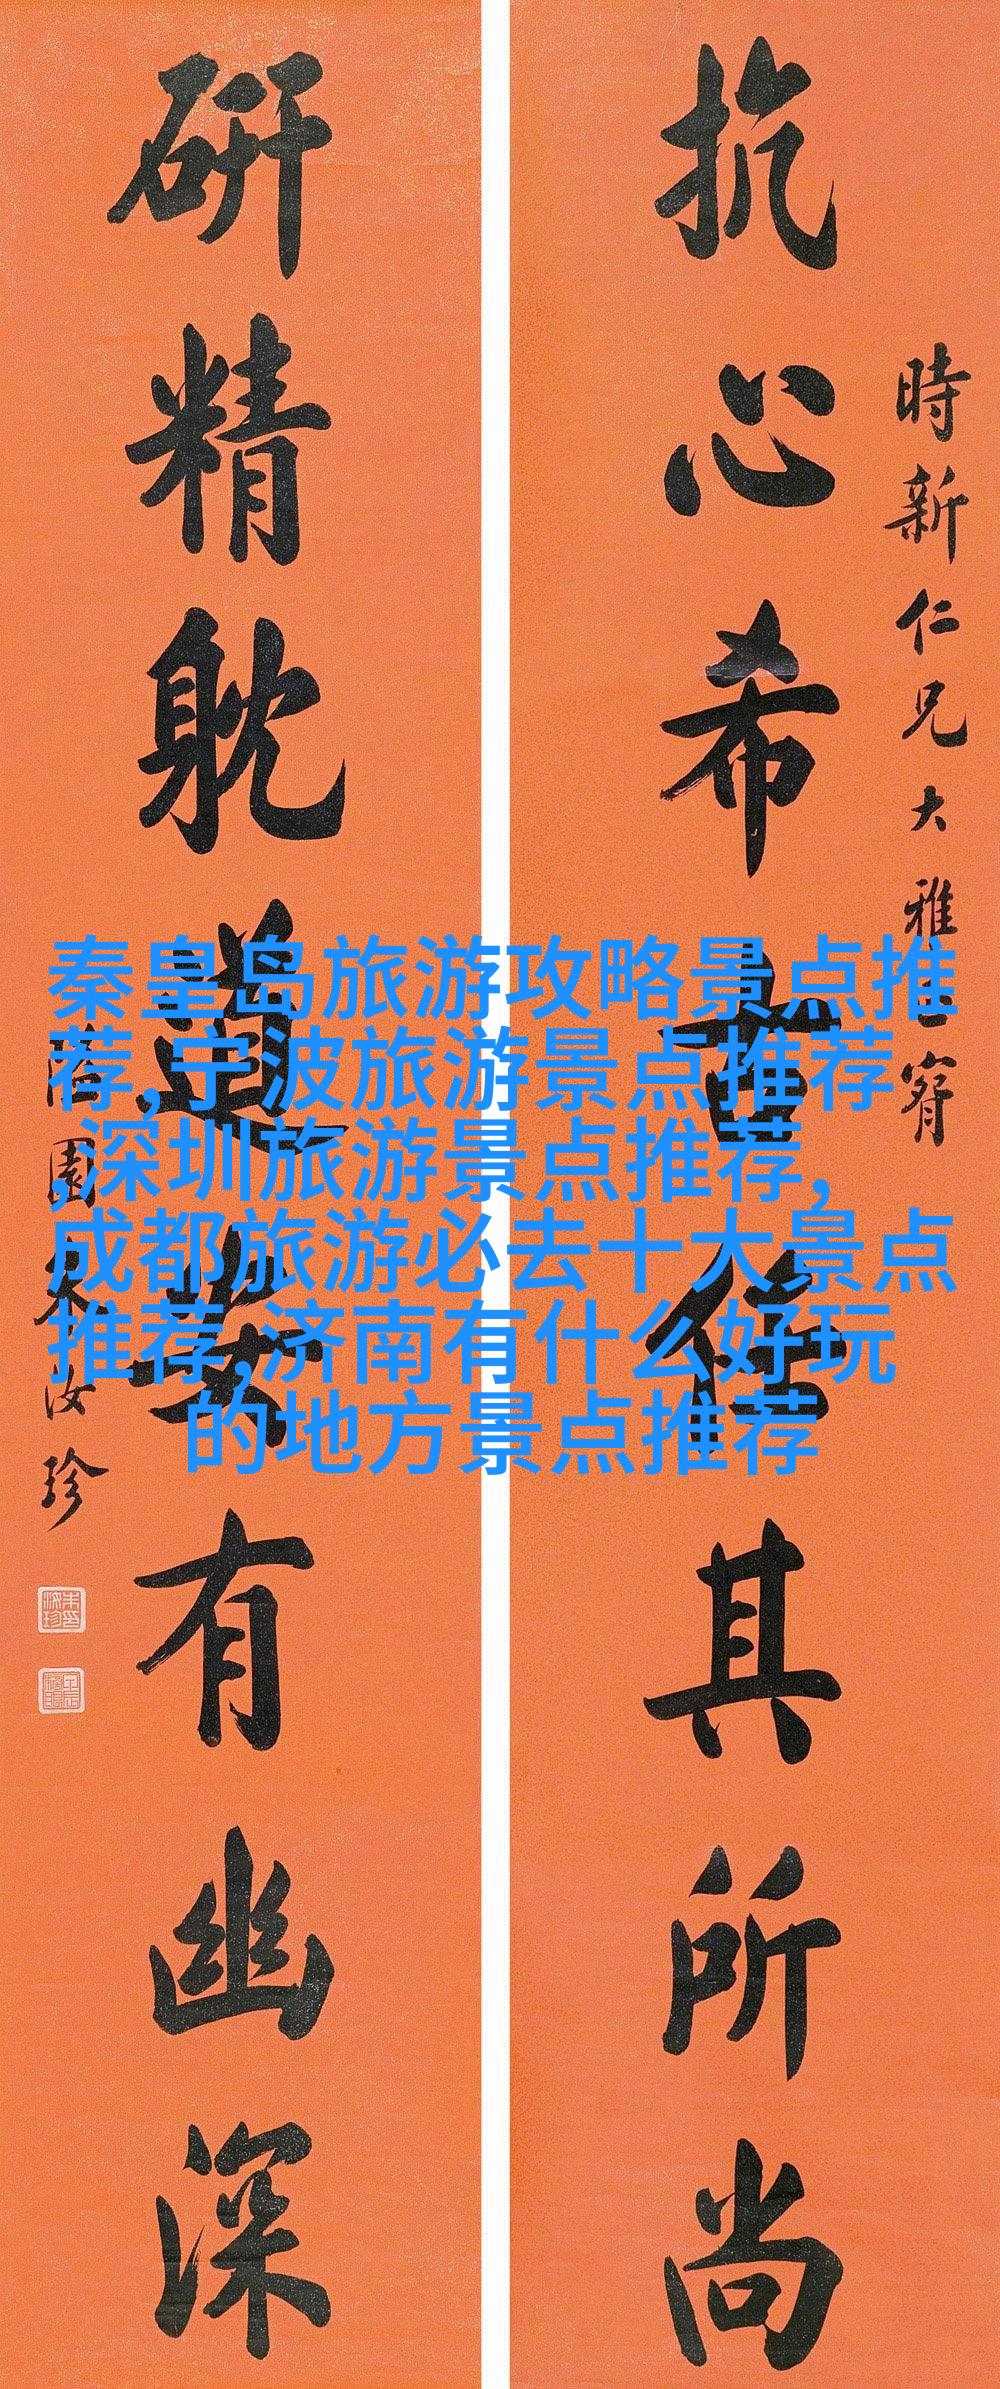 時新仁兄大雅
抗心希古任其所尚
研精躭道有幽深
園朱汝珍
秦皇岛旅游攻略景点推
荐,宁波旅游景点推荐
,深圳旅游景点推荐,
成都旅游必去十大景点
推荐,济南有什么好玩
的地方景点推荐